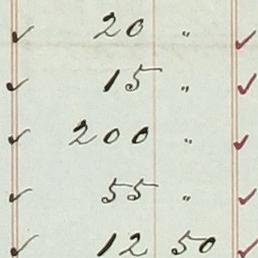 ✓ 20 " ✓
✓ 15 " ✓
✓ 200 " ✓
✓ 55 " ✓
✓ 12 50 ✓